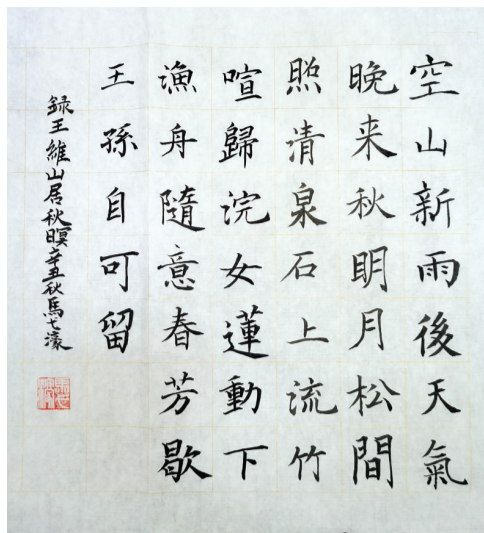 空山新雨後天氣
晚来秋明月松間
照清泉石上流竹
喧歸浣女蓮動下
漁舟隨意春芳歇
王孫自可留
録王維山居秋暝辛丑秋馬濠